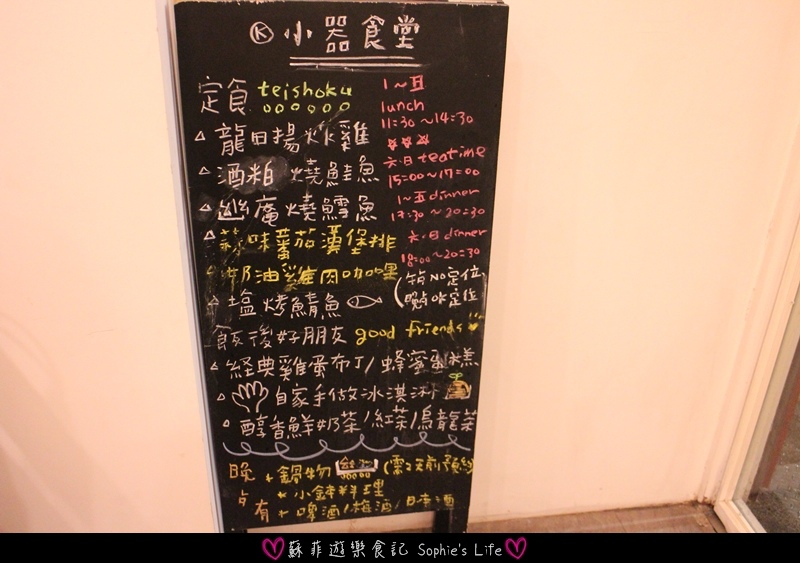 Ⓚ 小器食堂
定食 teishoku
△ 龍田揚炸雞
△ 酒粕燒鮭魚
△ 幽庵燒鱈魚
△ 蒜味蕃茄漢堡排
△ 奶油雞肉咖哩
△ 塩烤鯖魚
1～五
lunch
11:30～14:30
六.日 teatime
15:00～17:00
1～五 dinner
17:30～20:30
六.日 dinner
18:00～20:30
飯後好朋友 good friends
△ 経典雞蛋布丁/蜂蜜蛋糕
△ 自家手做冰淇淋
△ 醇香鮮奶茶/紅茶/烏龍茶
晚点有
+ 鍋物 (需2天前預約)
+ 小鉢料理
+ 啤酒/梅酒/日本酒
蘇菲遊樂食記 Sophie's Life